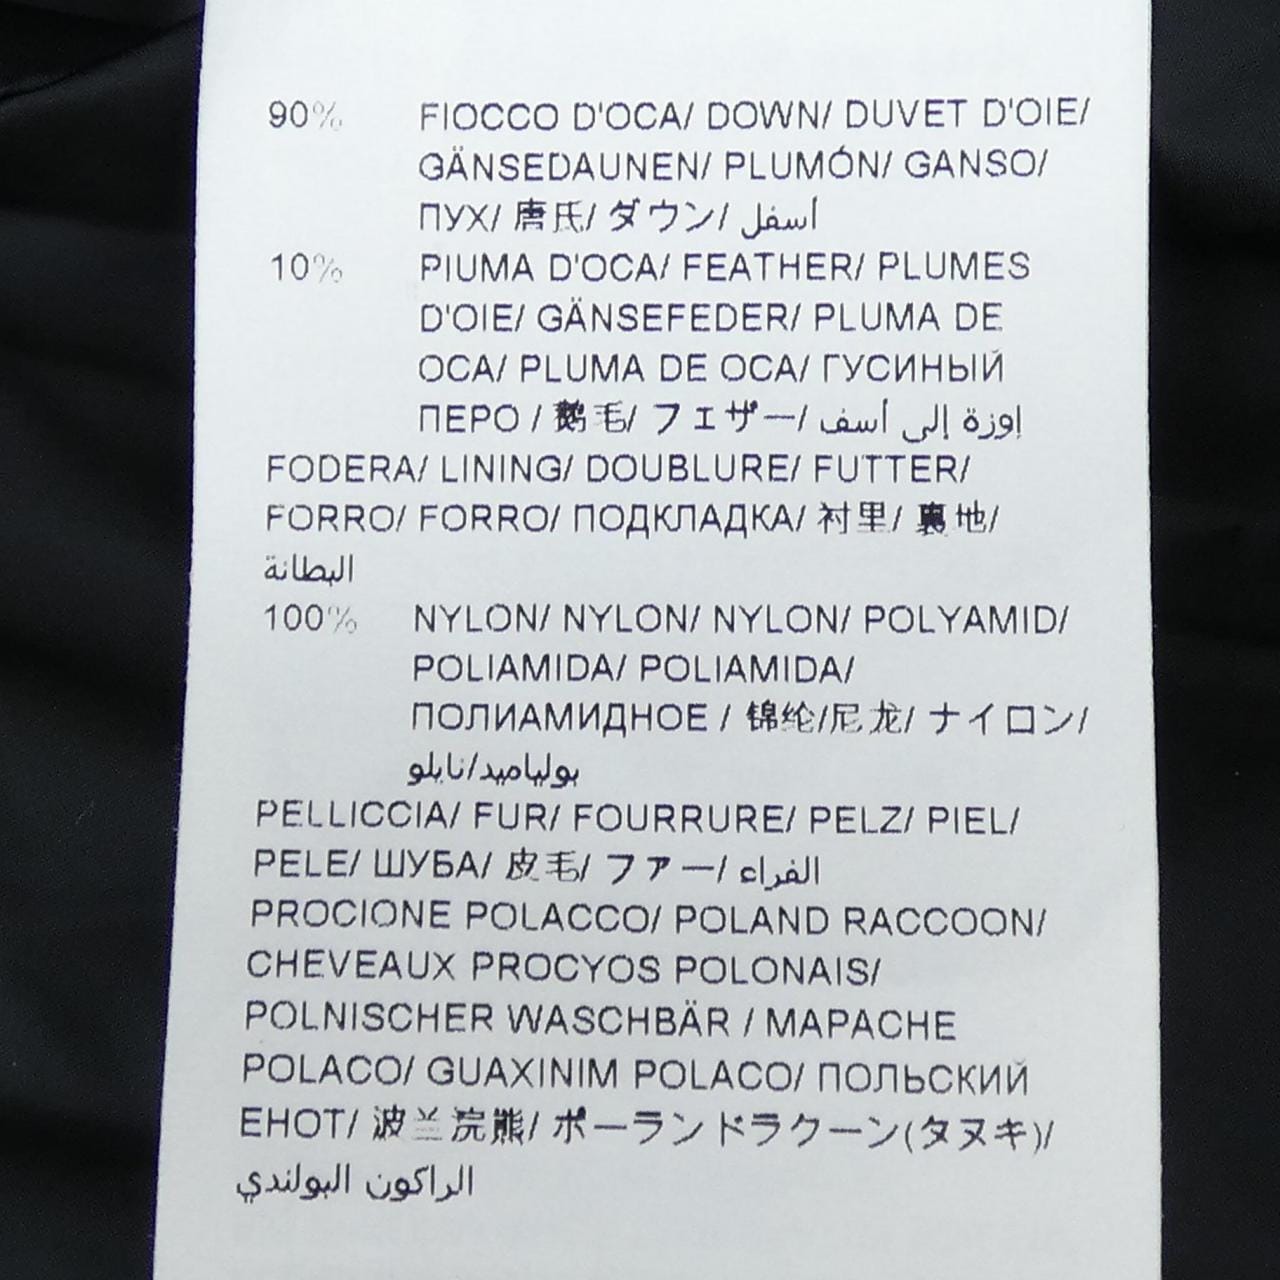 90% FIOCCO D'OCA/ DOWN/ DUVET D'OIE/
GÄNSEDAUNEN/ PLUMÓN/ GANSO/
ПУХ/ 唐氏/ ダウン/ أسفل
10% PIUMA D'OCA/ FEATHER/ PLUMES
D'OIE/ GÄNSEFEDER/ PLUMA DE
OCA/ PLUMA DE OCA/ ГУСИНЫЙ
ПЕРО / 鹅毛/ フェザー/ إوزة إلى أسف
FODERA/ LINING/ DOUBLURE/ FUTTER/
FORRO/ FORRO/ ПОДКЛАДКА/ 衬里/ 裏地/
البطانة
100% NYLON/ NYLON/ NYLON/ POLYAMID/
POLIAMIDA/ POLIAMIDA/
ПОЛИАМИДНОЕ / 锦纶/尼龙/ ナイロン/
بولياميد/نايلو
PELLICCIA/ FUR/ FOURRURE/ PELZ/ PIEL/
PELE/ ШУБА/ 皮毛/ ファー/ الفراء
PROCIONE POLACCO/ POLAND RACCOON/
CHEVEAUX PROCYOS POLONAIS/
POLNISCHER WASCHBÄR / MAPACHE
POLACO/ GUAXINIM POLACO/ ПОЛЬСКИЙ
ЕНОТ/ 波兰浣熊/ ポーランドラクーン(タヌキ)/
الراكون البولندي